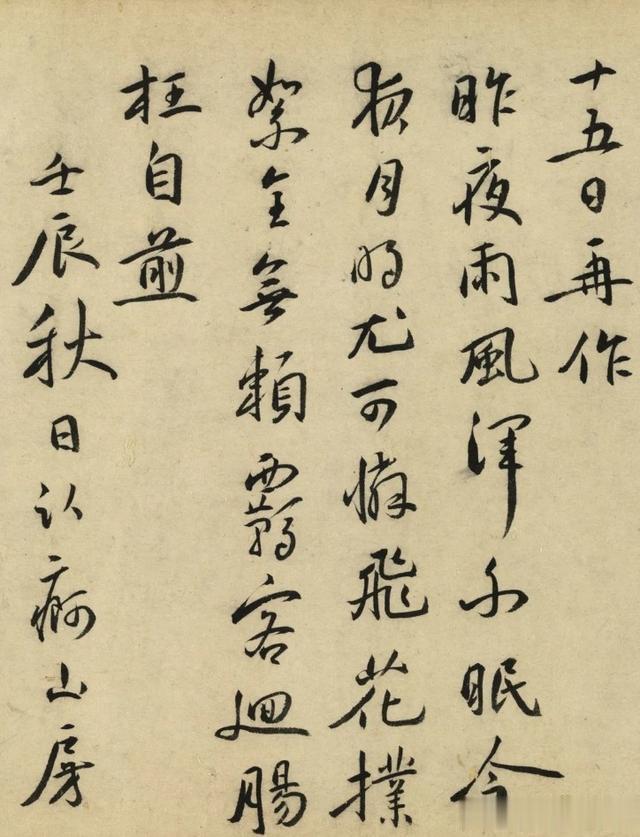 十五日再作
昨夜雨風渾不眠今
夜月明尤可憐飛花撲
絮全無賴羈客迴腸
枉自煎
壬辰秋日臥痾山房